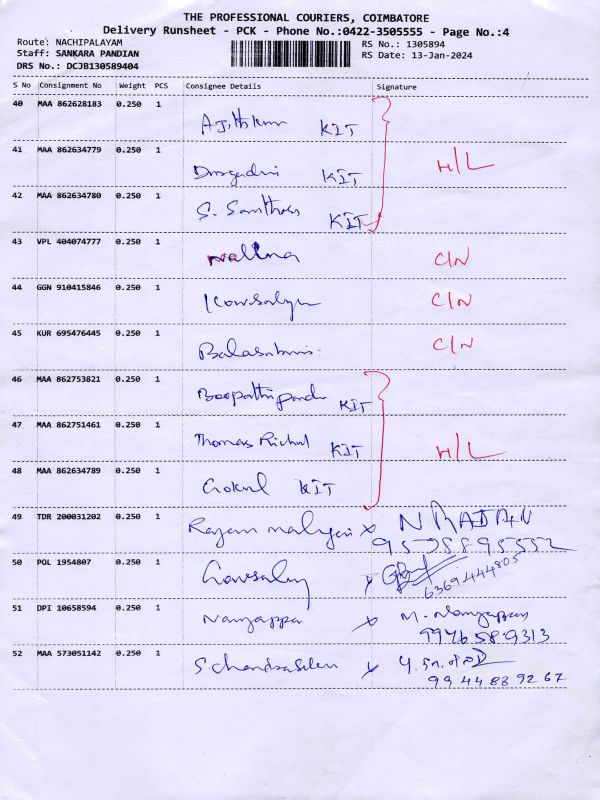 THE PROFESSIONAL COURIERS, COIMBATORE
Delivery Runsheet - PCK - Phone No.:0422-3505555 - Page No.:4
Route: NACHIPALAYAM
Staff: SANKARA PANDIAN
DRS No.: DCJB130589404
RS No.: 1305894
RS Date: 13-Jan-2024
S No Consignment No Weight PCS Consignee Details Signature
40 MAA 862628183 0.250 1
KIT
41 MAA 862634779 0.250 1
KIT H/L
42 MAA 862634780 0.250 1
S. Santhos KIT
43 VPL 404074777 0.250 1
C/N
44 GGN 910415846 0.250 1
Kowsalya C/N
45 KUR 695476445 0.250 1
C/N
46 MAA 862753821 0.250 1
KIT
47 MAA 862751461 0.250 1
Thomas KIT H/L
48 MAA 862634789 0.250 1
Gokul KIT
49 TDR 200031202 0.250 1
x
50 POL 1954807 0.250 1
x
6369444805
51 DPI 10658594 0.250 1
Nanjappa x M. Nanjappan
9976 58 9313
52 MAA 573051142 0.250 1
x
99 44 88 92 67